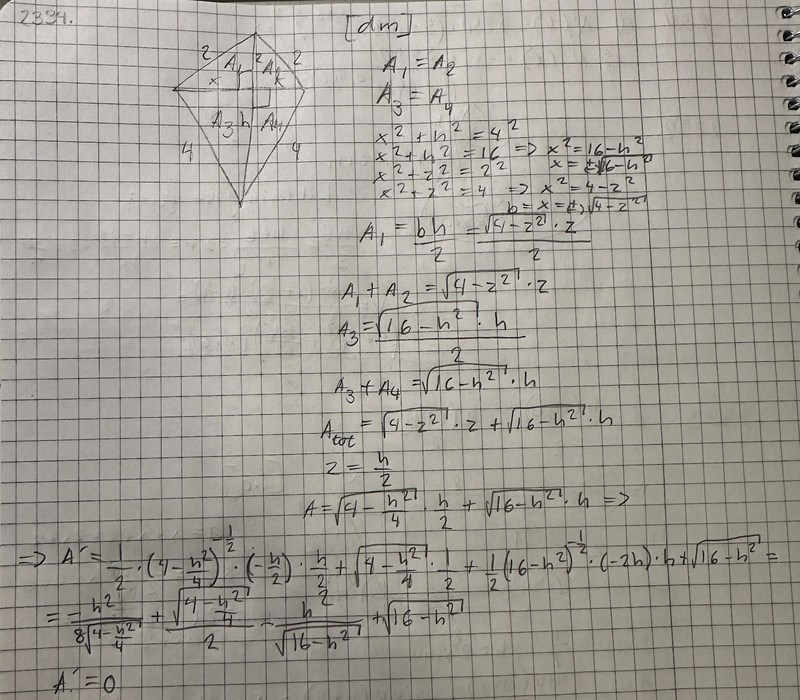 2334.
[dm]
2 A₁ z A₂ 2
x
A₃ h A₄
4 4
A₁ = A₂
A₃ = A₄
x² + h² = 4²
x² + h² = 16 => x² = 16 - h²
x = ±√16-h²
x² + z² = 2²
x² + z² = 4 => x² = 4 - z²
b = x = (±)√4-z²
A₁ = bh/2 = √4-z² · z/2
A₁ + A₂ = √4-z² · z
A₃ = √16-h² · h/2
A₃ + A₄ = √16-h² · h
A_tot = √4-z² · z + √16-h² · h
z = h/2
A = √4 - h²/4 · h/2 + √16-h² · h =>
=> A' = 1/2 · (4 - h²/4)^-1/2 · (-h/2) · h/2 + √4 - h²/4 · 1/2 + 1/2(16-h²)^-1/2 · (-2h) · h + √16-h² =
= -h²/8√4-h²/4 + √4-h²/4/2 - h²/√16-h² + √16-h²
A' = 0